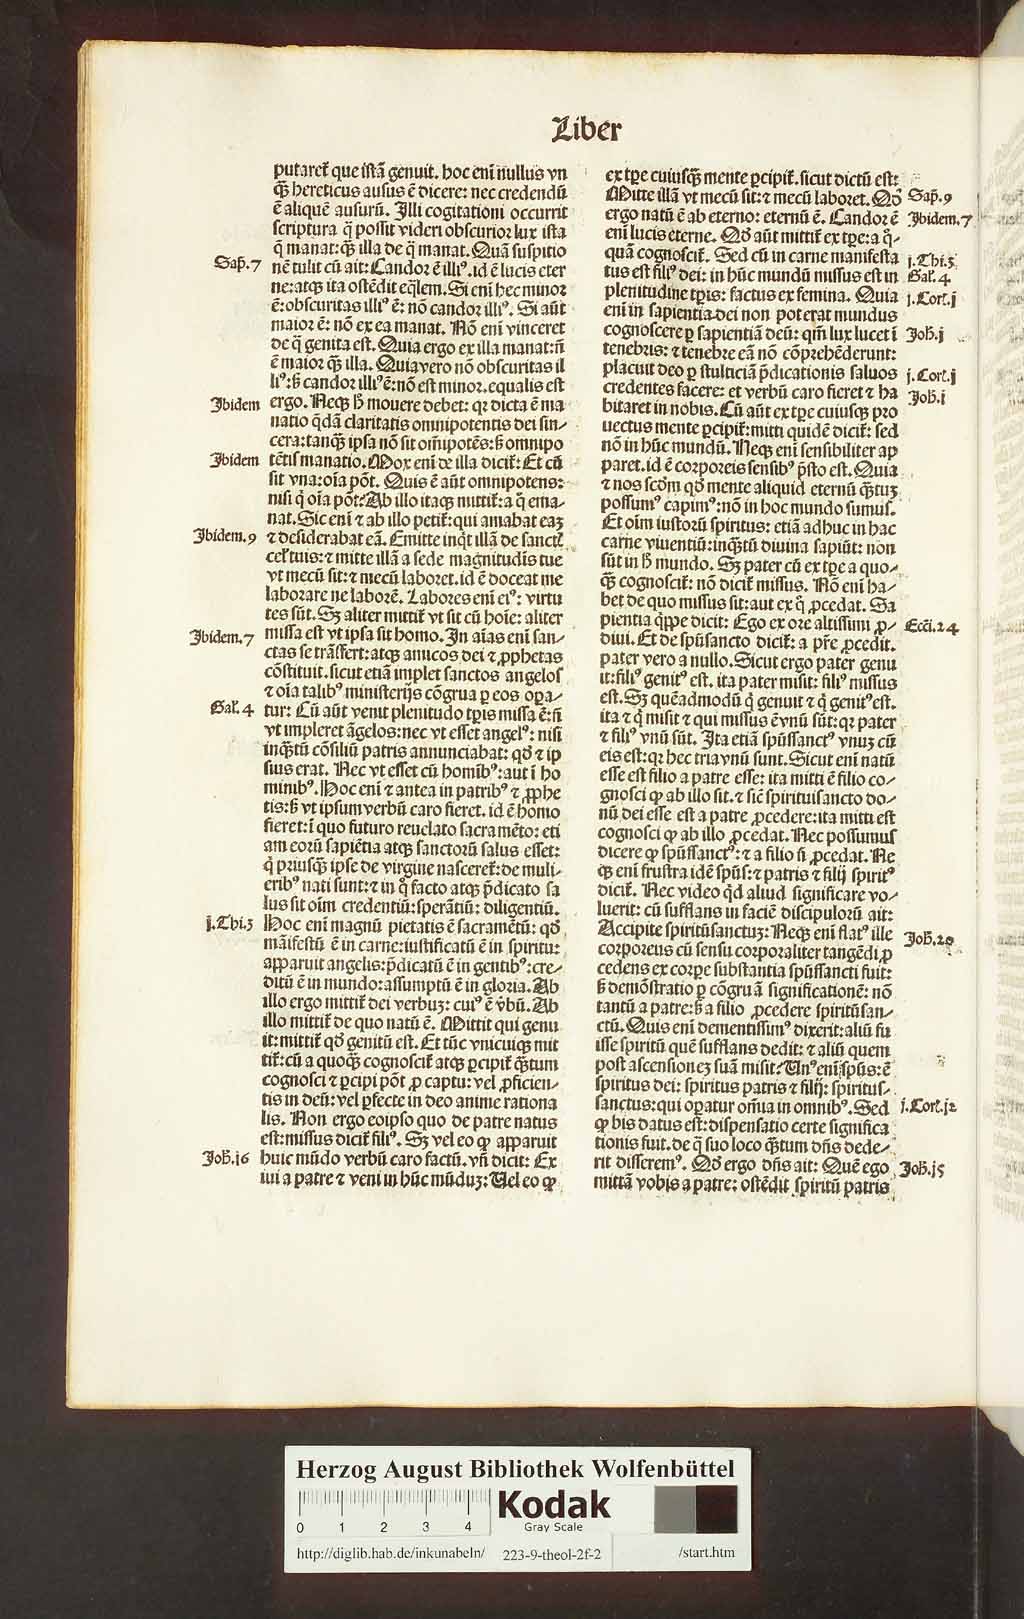 Liber
putaret̃ que istã genuit. hoc eni nullus vn
q̃ʒ hereticus ausus ẽ dicere: nec credendũ
ẽ aliquẽ ausurũ. Illi cogitationi occurrit
scriptura q̃ possit videri obscurior lux ista
q̃ manat: q̃ʒ illa de q̃ manat. Quã suspitio
Sap̃. 7
nẽ tulit cũ ait: Candor ẽ illiꝰ. id ẽ lucis eter
ne: atqʒ ita ostẽdit eq̃lem. Si eni hec minor
ẽ: obscuritas illiꝰ ẽ: nõ candor illiꝰ. Si aũt
maior ẽ: nõ ex ea manat. Nõ eni vinceret
de q̃ genita est. Quia ergo ex illa manat: ñ
ẽ maior q̃ʒ illa. Quia vero nõ obscuritas il
liꝰ: s̃ candor illiꝰ ẽ: nõ est minor. equalis est
Ibidem
ergo. Neqʒ h̃ mouere debet: qꝛ dicta ẽ ma
natio q̃dã claritatis omnipotentis dei sin⸗
cera: tanq̃ʒ ipsa nõ sit om̃ipotẽs: s̃ omnipo
Ibidem
tẽtis manatio. Mox eni de illa dicit̃: Et cũ
sit vna: oĩa põt. Quis ẽ aũt omnipotens:
nisi q̃ oĩa põt? Ab illo itaqʒ mittit̃: a q̃ ema⸗
nat. Sic eni ⁊ ab illo petit̃: qui amabat eaʒ
Ibidem. 9
⁊ desiderabat eã. Emitte inq̃t illã de sanct̃
cel̃ tuis: ⁊ mitte illã a sede magnitudis tue
vt mecũ sit: ⁊ mecũ laboret. id ẽ doceat me
laborare ne laborẽ. Labores eni eiꝰ: virtu
tes sũt. Sʒ aliter mittit̃ vt sit cũ hoĩe: aliter
Ibidem. 7
missa est vt ipsa sit homo. In aĩas eni san⸗
ctas se trãsfert: atqʒ amicos dei ⁊ ꝓphetas
cõstituit. sicut etiã implet sanctos angelos
⁊ oĩa talibꝰ ministerijs cõgrua ꝑ eos oꝑa⸗
Gal̃. 4
tur: Cũ aũt venit plenitudo tp̃is missa ẽ: ñ
vt impleret ãgelos: nec vt esset angelꝰ: nisi
inq̃ʒtũ cõsiliũ patris annunciabat: qõ ⁊ ip
sius erat. Nec vt esset cũ hominibꝰ: aut ĩ ho
minibꝰ. Hoc eni ⁊ antea in patribꝰ ⁊ ꝓphe
tis: s̃ vt ipsum verbũ caro fieret. id ẽ homo
fieret: ĩ quo futuro reuelato sacramẽto: eti
am eorũ sapiẽtia atqʒ sanctorũ salus esset:
q̃ priusq̃ʒ ipse de virgine nasceret̃: de muli⸗
eribꝰ nati sunt: ⁊ in q̃ facto atqʒ p̃dicato sa
lus sit oĩm credentiũ: sperãtiũ: diligentiũ.
j. Thi. 3
Hoc eni magnũ pietatis ẽ sacramẽtũ: qõ
mãifestũ ẽ in carne: iustificatũ ẽ in spiritu:
apparuit angelis: p̃dicatũ ẽ in gentibꝰ: cre⸗
ditũ ẽ in mundo: assumptũ ẽ in gloria. Ab
illo ergo mittit̃ dei verbuʒ: cuiꝰ ẽ ṽbũ. Ab
illo mittit̃ de quo natũ ẽ. Mittit qui genu
it: mittit̃ qõ genitũ est. Et tũc vnicuiqʒ mit
tit̃: cũ a quoqʒ cognoscit̃ atqʒ ꝑcipit̃ q̃ʒtum
cognosci ⁊ ꝑcipi põt ꝓ captu: vel ꝓficien⸗
tis in deũ: vel ꝑfecte in deo anime rationa
lis. Non ergo eoipso quo de patre natus
est: missus dicit̃ filiꝰ. Sʒ vel eo ꝙ apparuit
Joh̃. 16
huic mũdo verbũ caro factũ. vñ dicit: Ex
iui a patre ⁊ veni in hũc mũduʒ: Vel eo ꝙ
ex tp̃e cuiusq̃ʒ mente ꝑcipit̃. sicut dictũ est:
Mitte illã vt mecũ sit: ⁊ mecũ laboret. Qõ
Sap̃. 9
ergo natũ ẽ ab eterno: eternũ ẽ. Candor ẽ
Ibidem. 7
eni lucis eterne. Qõ aũt mittit̃ ex tp̃e: a q̃⸗
quã cognoscit̃. Sed cũ in carne manifesta
j. Thi. 3
tus est filiꝰ dei: in hũc mundũ missus est in
Gal̃. 4
plenitudine tp̃is: factus ex femina. Quia
j. Cor̃. j
eni in sapientia dei non poterat mundus
cognoscere ꝑ sapientiã deũ: qm̃ lux lucet ĩ
Joh̃. j
tenebris: ⁊ tenebre eã nõ cõprehẽderunt:
placuit deo ꝑ stulticiã p̃dicationis saluos
j. Cor̃. j
credentes facere: et verbũ caro fieret ⁊ ha
Joh̃. i
bitaret in nobis. Cũ aũt ex tp̃e cuiusqʒ pro
uectus mente ꝑcipit̃: mitti quidẽ dicit̃: sed
nõ in hũc mundũ. Neqʒ eni sensibiliter ap
paret. id ẽ corporeis sensibꝰ p̃sto est. Quia
⁊ nos scd̃m qõ mente aliquid eternũ q̃ʒtuʒ
possumꝰ capimꝰ: nõ in hoc mundo sumus.
Et oĩm iustorũ spiritus: etiã adhuc in hac
carne viuentiũ: inq̃ʒtũ diuina sapiũt: non
sũt in h̃ mundo. Sʒ pater cũ ex tp̃e a quo⸗
q̃ʒ cognoscit̃: nõ dicit̃ missus. Nõ eni ha⸗
bet de quo missus sit: aut ex q̃ ꝓcedat. Sa
pientia q̃ppe dicit: Ego ex ore altissimi ꝓ⸗
Ecci. 24
diui. Et de spũsancto dicit̃: a pr̃e ꝓcedit.
pater vero a nullo. Sicut ergo pater genu
it: filiꝰ genitꝰ est. ita pater misit: filiꝰ missus
est. Sʒ quẽadmodũ q̃ genuit ⁊ q̃ genitꝰ est.
ita ⁊ q̃ misit ⁊ qui missus ẽ vnũ sũt: qꝛ pater
⁊ filiꝰ vnũ sũt. Ita etiã spũssanctꝰ vnuʒ cũ
eis est: qꝛ hec tria vnũ sunt. Sicut eni natũ
esse est filio a patre esse: ita mitti ẽ filio co⸗
gnosci ꝙ ab illo sit. ⁊ sic̃ spirituisancto do⸗
nũ dei esse est a patre ꝓcedere: ita mitti est
cognosci ꝙ ab illo ꝓcedat. Nec possumus
dicere ꝙ spũssanctꝰ: ⁊ a filio ñ ꝓcedat. Ne
qʒ eni frustra idẽ spũs: ⁊ patris ⁊ filij spiritꝰ
dicit̃. Nec video q̃d aliud significare vo⸗
luerit: cũ sufflans in faciẽ discipulorũ ait:
Accipite spiritũsanctuʒ: Neqʒ eni flatꝰ ille
Joh̃. 20
corporeus cũ sensu corporaliter tangẽdi ꝓ
cedens ex corpe substantia spũssancti fuit:
s̃ demõstratio ꝑ cõgruã significationẽ: nõ
tantũ a patre: s̃ a filio ꝓcedere spiritũsan⸗
ctũ. Quis eni dementissimꝰ dixerit: aliũ fu
isse spiritũ quẽ sufflans dedit: ⁊ aliũ quem
post ascensioneʒ suã misit? Vnꝰ eni spũs: ẽ
spiritus dei: spiritus patris ⁊ filij: spiritus⸗
sanctus: qui oꝑatur om̃ia in omnibꝰ. Sed
j. Cor̃. j2
ꝙ bis datus est: dispensatio certe significa
tionis fuit. de q̃ suo loco q̃ʒtum dñs dede⸗
rit disseremꝰ. Qõ ergo dñs ait: Quẽ ego
Joh̃. j5
mittã vobis a patre: ostẽdit spiritũ patris
Herzog August Bibliothek Wolfenbüttel
0 1 2 3 4
Kodak
Gray Scale
http://diglib.hab.de/inkunabeln/ 223-9-theol-2f-2 /start.htm